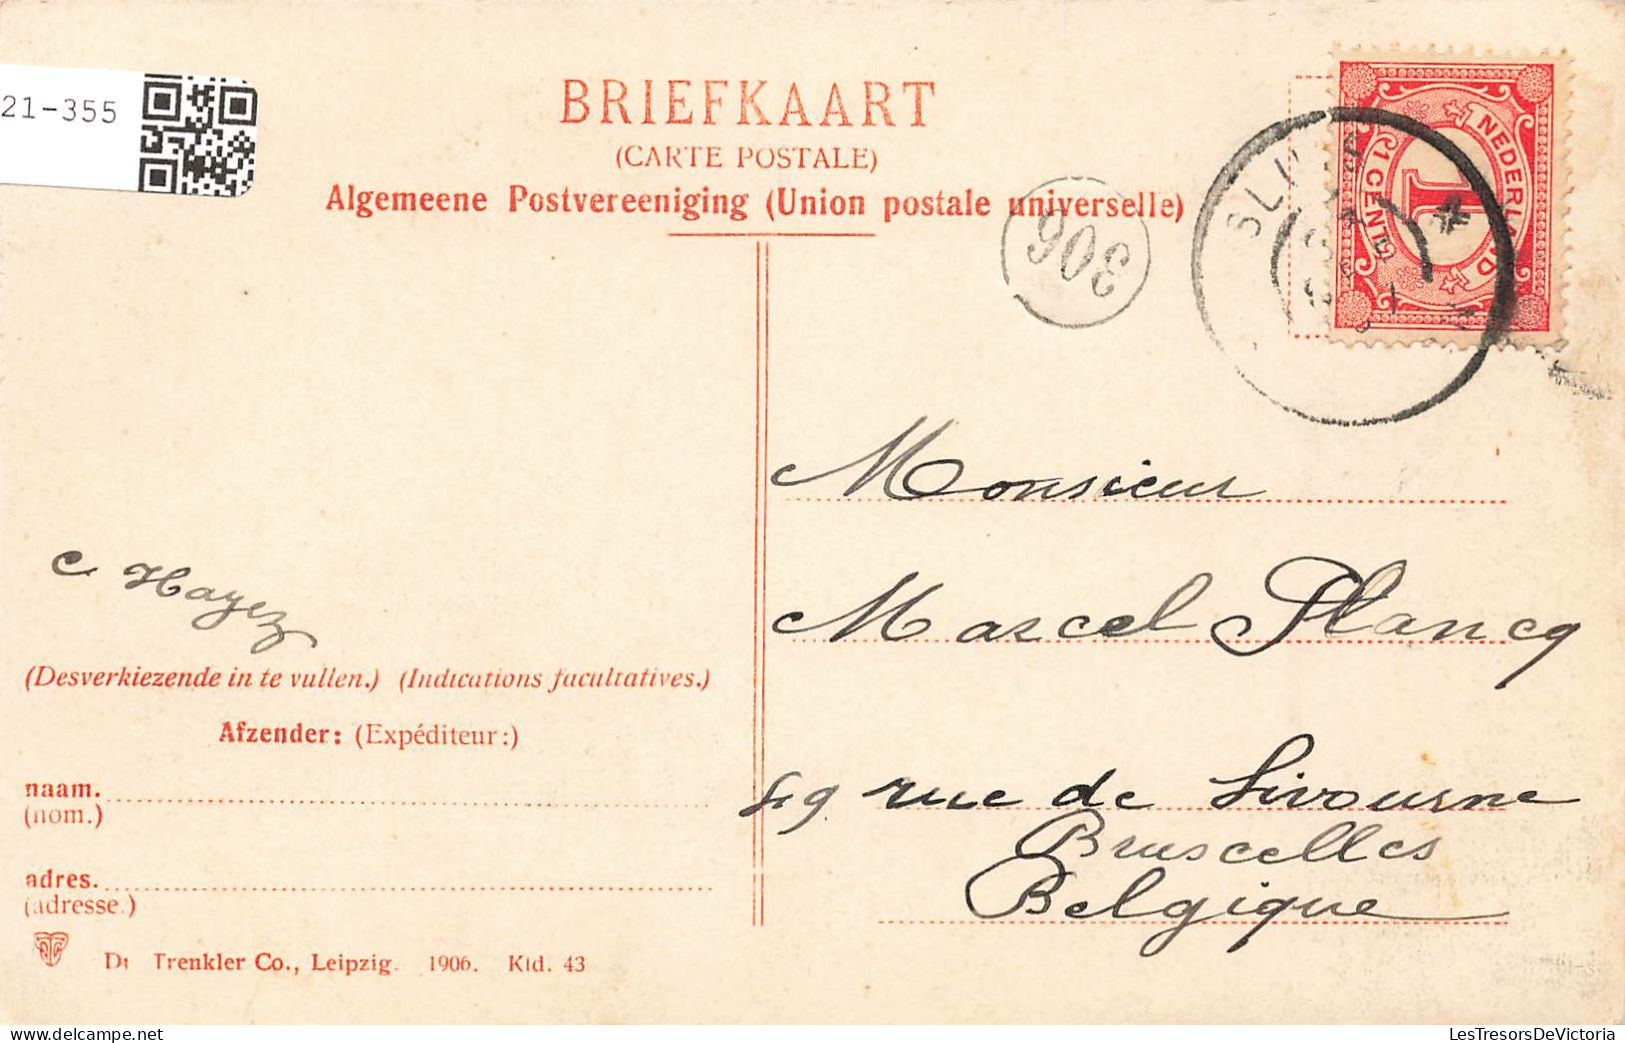 21-355
BRIEFKAART
(CARTE POSTALE)
Algemeene Postvereeniging (Union postale universelle)
306
SLUIS
NEDERLAND
1
1 CENT
Monsieur
Marcel Plancq
rue de Livourne
Bruxelles
Belgique
C Hayez
(Desverkiezende in te vullen.) (Indications facultatives.)
Afzender: (Expéditeur:)
naam.
(nom.)
adres.
(adresse.)
Dr Trenkler Co., Leipzig. 1906. Kld. 43
delcampe.net
LesTresorsDeVictoria